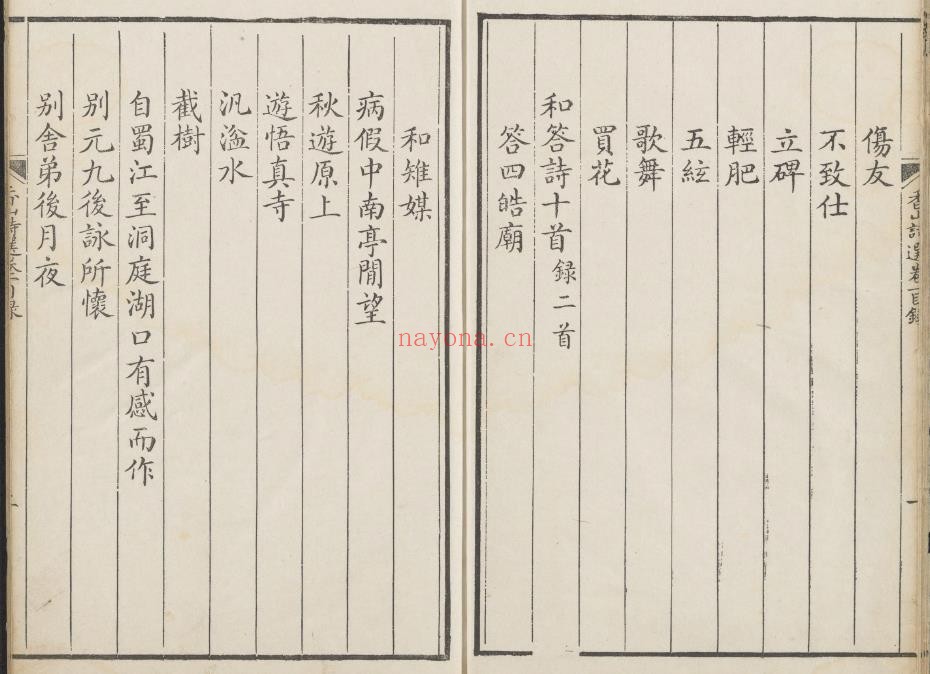 香山詩選卷一目錄
傷友
不致仕
立碑
輕肥
五絃
歌舞
買花
和答詩十首 録二首
答四皓廟
和雉媒
病假中南亭閒望
秋遊原上
遊悟真寺
汎湓水
截樹
自蜀江至洞庭湖口有感而作
别元九後詠所懷
别舍弟後月夜
香山詩選卷一目録
nayona.cn